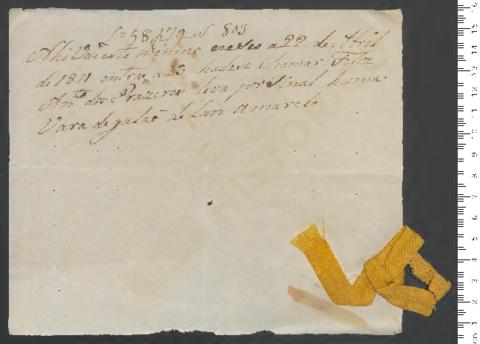 Lº 58 f 79 nº 803
Ahi Vai este menino nasseo a 22 de Abril
de 1811 entrou a 23 hadese Chamar
Antº dos Prazeres leva por sinal huma
Vara de galão de Lan amarelo